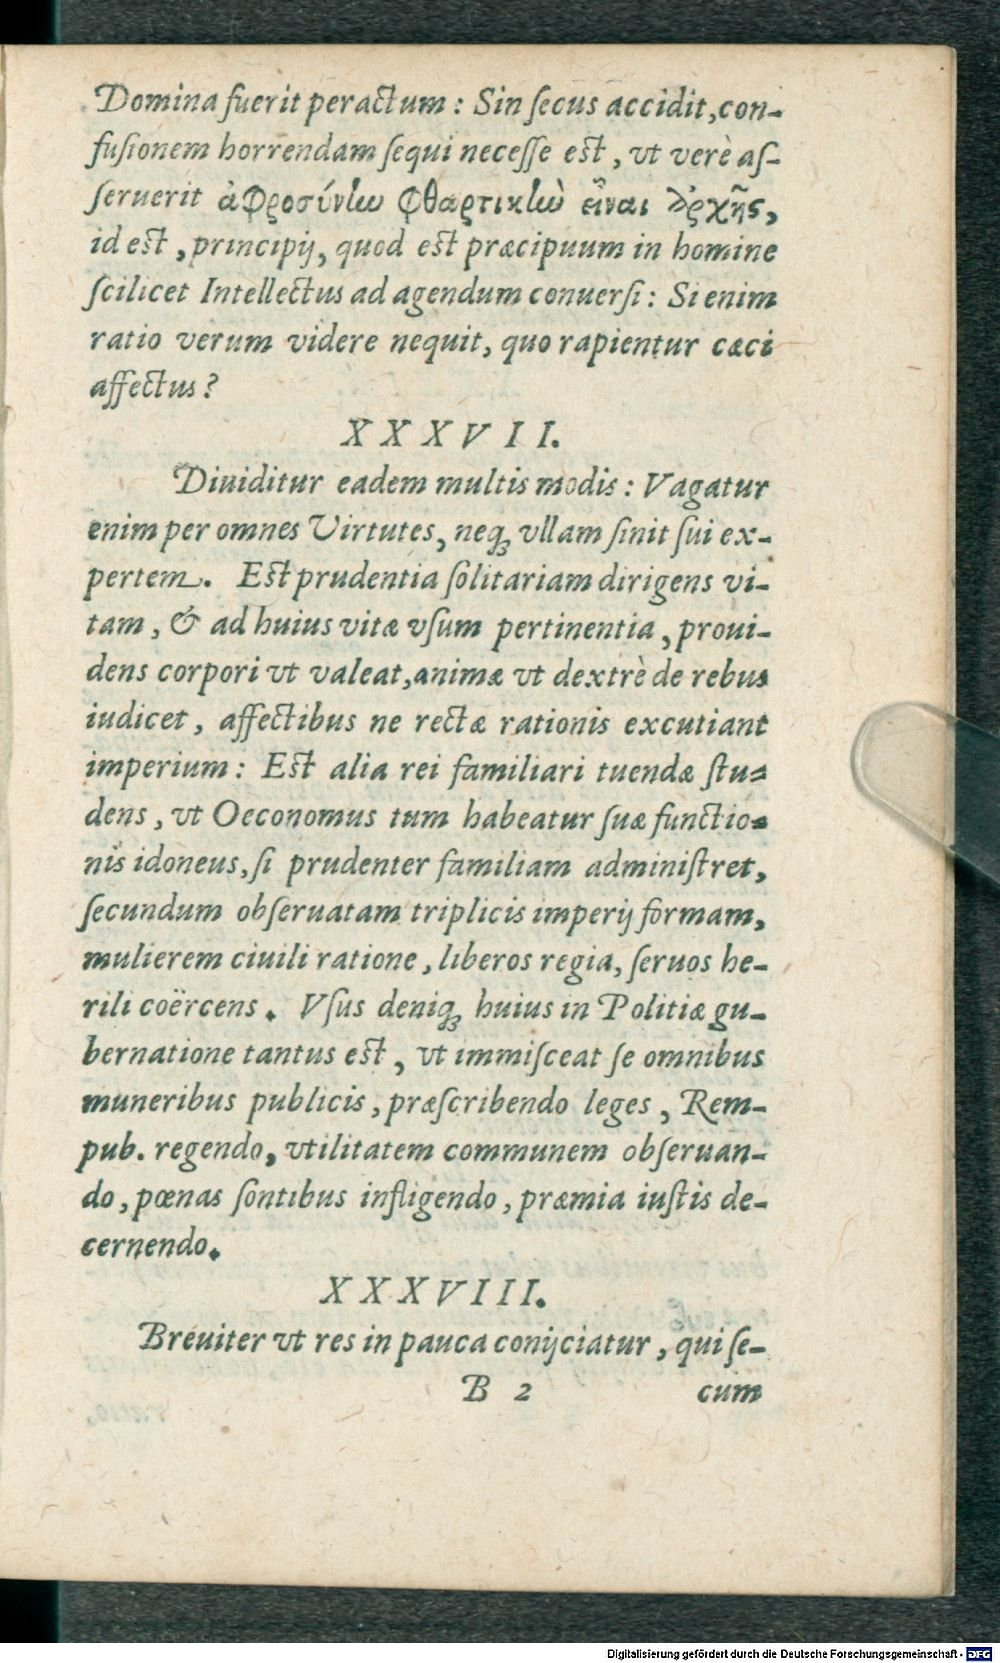 Domina fuerit peractum: Sin ſecus accidit, con-
fuſionem horrendam ſequi neceſſe eſt, vt verè aſ-
ſeruerit ἀφροσύνην φθαρτικὴν εἶναι ἀρχῆς,
id eſt, principij, quod eſt præcipuum in homine
ſcilicet Intellectus ad agendum conuerſi: Si enim
ratio verum videre nequit, quo rapientur cæci
affectus?
XXXVII.
Diuiditur eadem multis modis: Vagatur
enim per omnes Virtutes, neq; vllam ſinit ſui ex-
pertem. Eſt prudentia ſolitariam dirigens vi-
tam, & ad huius vitæ vſum pertinentia, proui-
dens corpori vt valeat, animæ vt dextrè de rebus
iudicet, affectibus ne rectæ rationis excutiant
imperium: Eſt alia rei familiari tuendæ ſtu-
dens, vt Oeconomus tum habeatur ſuæ functio-
nis idoneus, ſi prudenter familiam adminiſtret,
ſecundum obſeruatam triplicis imperij formam,
mulierem ciuili ratione, liberos regia, ſeruos he-
rili coërcens. Vſus deniq; huius in Politiæ gu-
bernatione tantus eſt, vt immiſceat ſe omnibus
muneribus publicis, præſcribendo leges, Rem-
pub. regendo, vtilitatem communem obſeruan-
do, pœnas ſontibus infligendo, præmia iuſtis de-
cernendo.
XXXVIII.
Breuiter vt res in pauca conijciatur, qui ſe-
B 2 cum
Digitalisierung gefördert durch die Deutsche Forschungsgemeinschaft - DFG